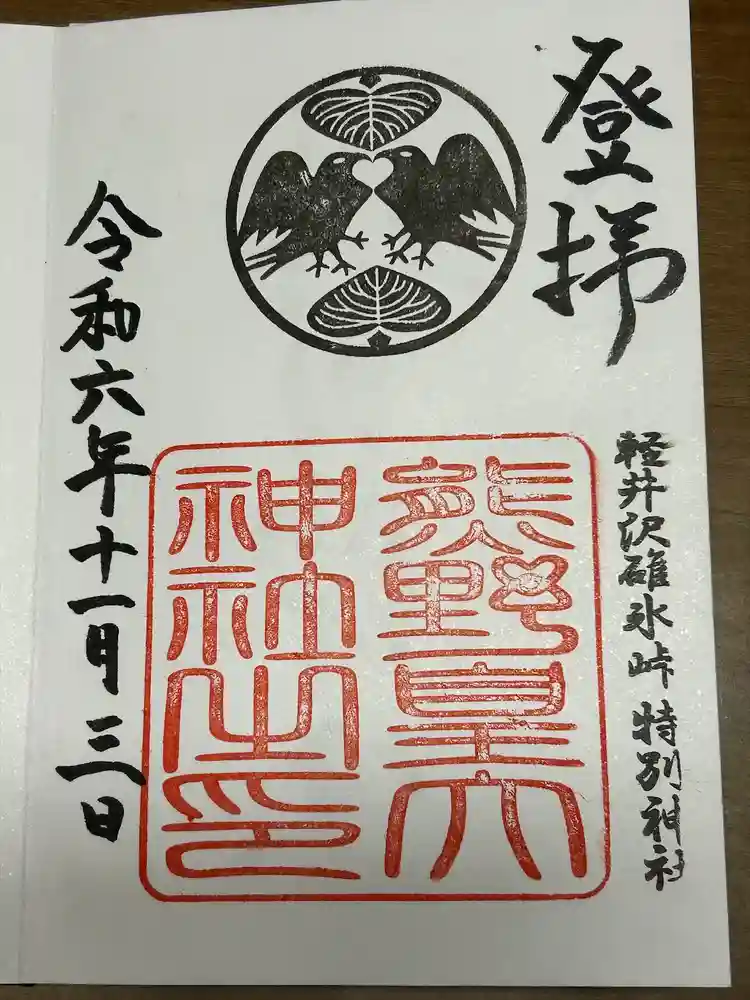 登拝
軽井沢碓氷峠特別神社
熊野皇大
神社之印
令和六年十一月三日